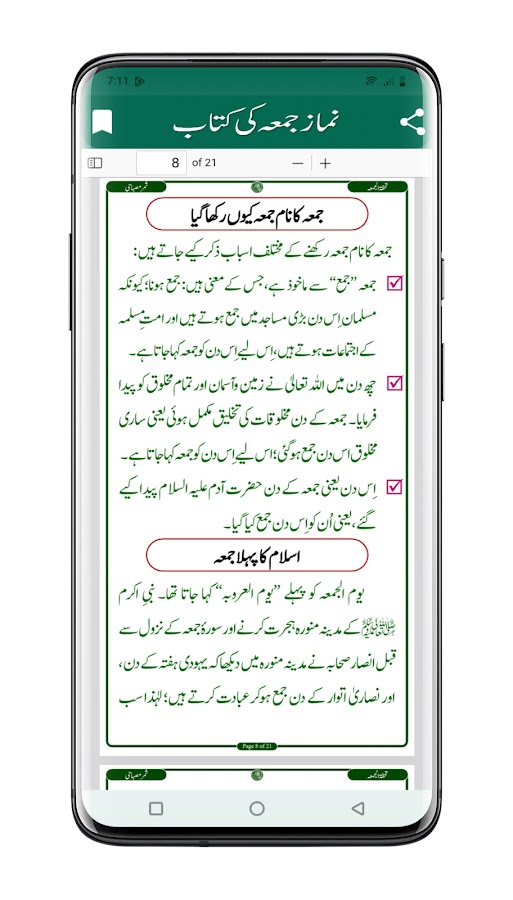 7:11
نماز جمعہ کی کتاب
8 of 21
تحفۃ الجمعہ
ثمر مصباحی
جمعہ کا نام جمعہ کیوں رکھا گیا
جمعہ کا نام جمعہ رکھنے کے مختلف اسباب ذکر کیے جاتے ہیں:
جمعہ ”جمع“ سے ماخوذ ہے، جس کے معنی ہیں: جمع ہونا؛ کیونکہ
مسلمان اِس دن بڑی مساجد میں جمع ہوتے ہیں اور امتِ مسلمہ
کے اجتماعات ہوتے ہیں، اِس لیے اِس دن کو جمعہ کہا جاتا ہے۔
چھ دن میں اللہ تعالیٰ نے زمین و آسمان اور تمام مخلوق کو پیدا
فرمایا۔ جمعہ کے دن مخلوقات کی تخلیق مکمل ہوئی یعنی ساری
مخلوق اس دن جمع ہوگئی؛ اس لیے اِس دن کو جمعہ کہا جاتا ہے۔
اِس دن یعنی جمعہ کے دن حضرت آدم علیہ السلام پیدا کیے
گئے، یعنی اُن کو اِس دن جمع کیا گیا۔
اسلام کا پہلا جمعہ
یوم الجمعہ کو پہلے ”یوم العروبہ“ کہا جاتا تھا۔ نبی اکرم
ﷺ کے مدینہ منورہ ہجرت کرنے اور سورۂ جمعہ کے نزول سے
قبل انصار صحابہ نے مدینہ منورہ میں دیکھا کہ یہودی ہفتہ کے دن،
اور نصاریٰ اتوار کے دن جمع ہوکر عبادت کرتے ہیں؛ لہٰذا سب
Page 8 of 21
تحفۃ الجمعہ
ثمر مصباحی